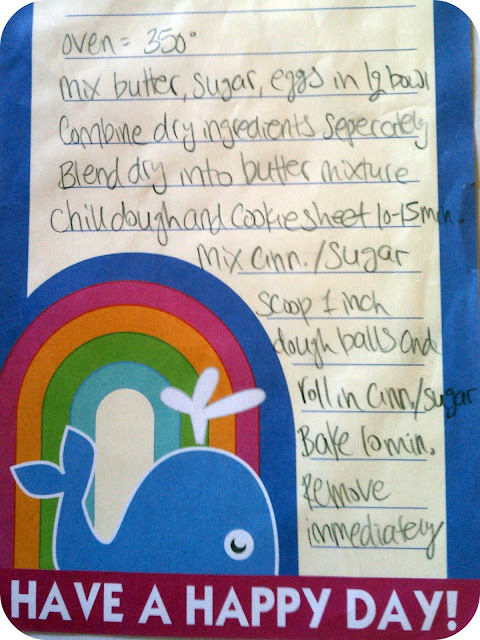 oven = 350°
mix butter, sugar, eggs in lg bowl
Combine dry ingredients seperately
Blend dry into butter mixture
Chill dough and cookie sheet 10-15 min.
Mix cinn./sugar
scoop 1 inch
dough balls and
roll in cinn./sugar
Bake 10 min.
Remove
immediately
HAVE A HAPPY DAY!